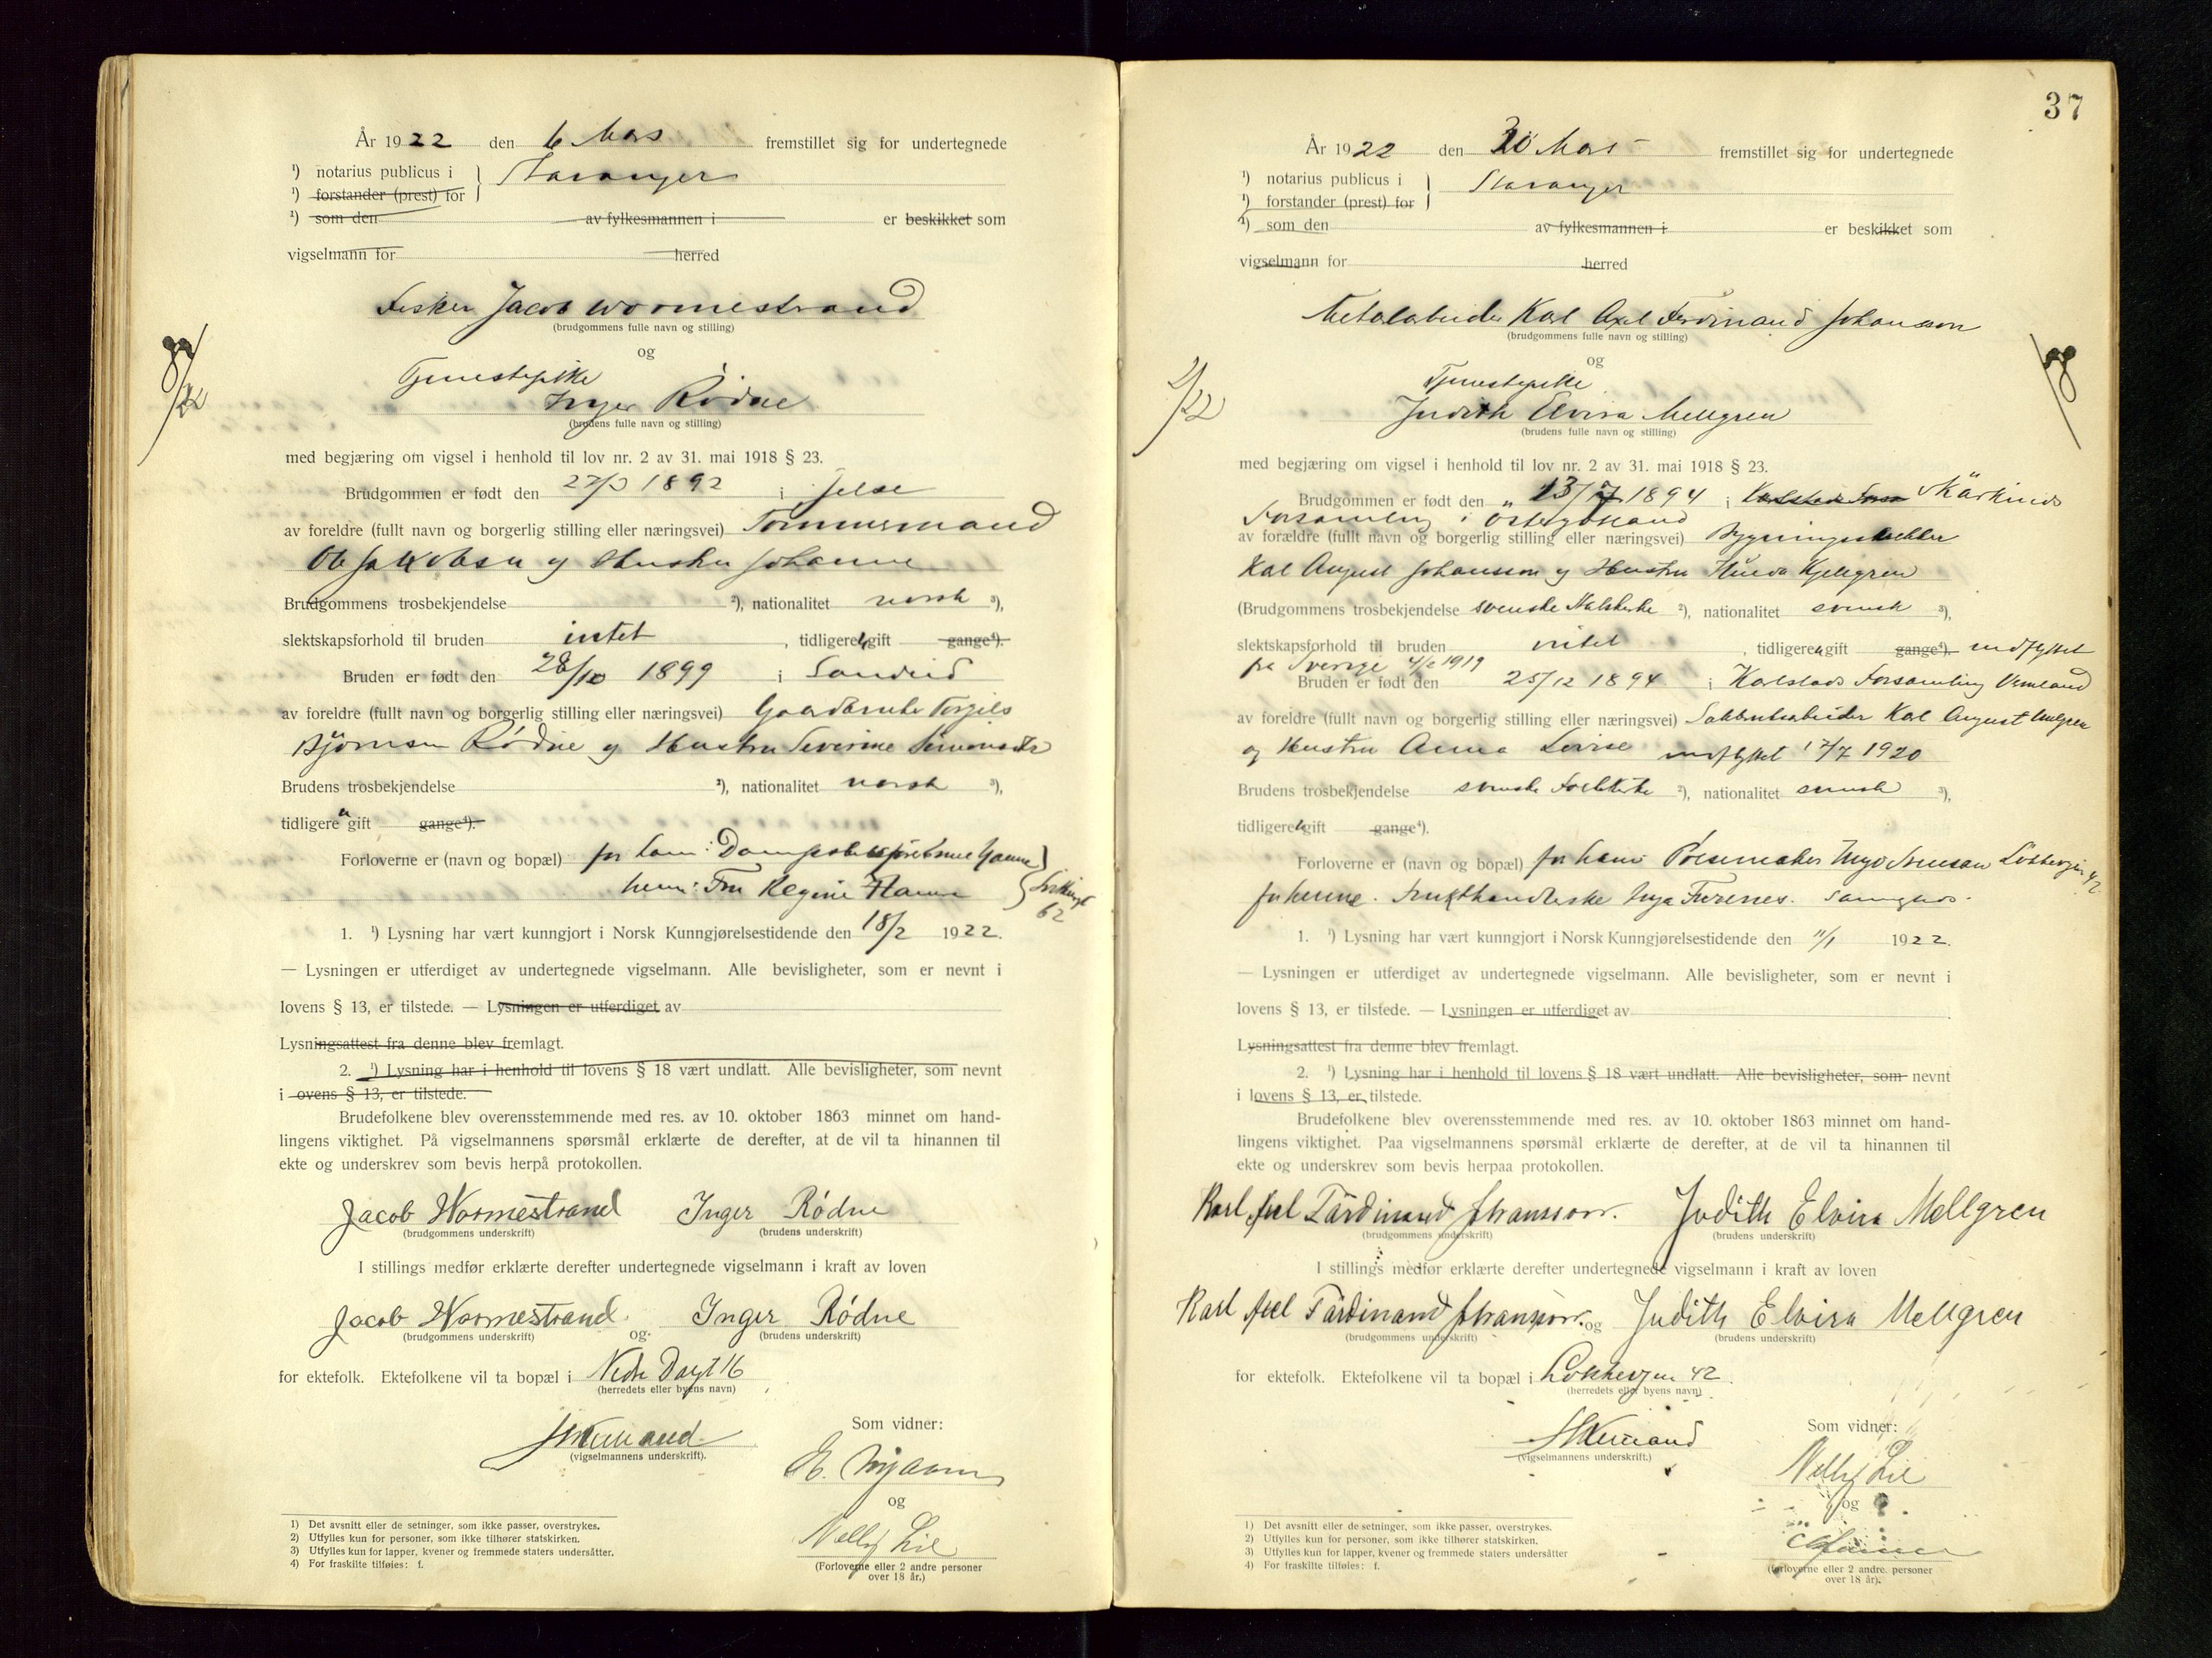 År 1922 den 6 Mars fremstillet sig for undertegnede
¹) notarius publicus i } Stavanger
¹) forstander (prest) for
¹) som den av fylkesmannen i er beskikket som
vigselmann for herred
Fisker Jacob Wormestrand
(brudgommens fulle navn og stilling)
og
Tjenestepike
Inger Rødne
(brudens fulle navn og stilling)
med begjæring om vigsel i henhold til lov nr. 2 av 31. mai 1918 § 23.
Brudgommen er født den 1892 i Jelse
av foreldre (fullt navn og borgerlig stilling eller næringsvei) Tømmermand
Ole Jakobsen og Hustru Johanne
Brudgommens trosbekjendelse ²), nationalitet norsk ³),
slektskapsforhold til bruden intet, tidligere gift gange⁴).
Bruden er født den 28/10 1899 i Sandeid
av foreldre (fullt navn og borgerlig stilling eller næringsvei) Gaardbruker Torgils
Bjørnsen Rødne og Hustru Severine Simonsdtr
Brudens trosbekjendelse ²), nationalitet norsk ³),
tidligere gift gange⁴).
Forloverne er (navn og bopæl) for ham: Hanne
henne: Fru Regine Hanne 62
1. ¹) Lysning har vært kunngjort i Norsk Kunngjørelsestidende den 18/2 1922.
— Lysningen er utferdiget av undertegnede vigselmann. Alle bevisligheter, som er nevnt i
lovens § 13, er tilstede. — Lysningen er utferdiget av
Lysningsattest fra denne blev fremlagt.
2. ¹) Lysning har i henhold til lovens § 18 vært undlatt. Alle bevisligheter, som nevnt
i ovens § 13, er tilstede.
Brudefolkene blev overensstemmende med res. av 10. oktober 1863 minnet om hand-
lingens viktighet. På vigselmannens spørsmål erklærte de derefter, at de vil ta hinannen til
ekte og underskrev som bevis herpå protokollen.
Jacob Wormestrand Inger Rødne
(brudgommens underskrift) (brudens underskrift)
I stillings medfør erklærte derefter undertegnede vigselmann i kraft av loven
Jacob Wormestrand. og Inger Rødne
(brudgommens underskrift) (brudens underskrift)
for ektefolk. Ektefolkene vil ta bopæl i Nedre 16
(herredets eller byens navn)
(vigselmannens underskrift).
Som vidner:
og
Nelly Lie
(Forloverne eller 2 andre personer
over 18 år.)
1) Det avsnitt eller de setninger, som ikke passer, overstrykes.
2) Utfylles kun for personer, som ikke tilhører statskirken.
3) Utfylles kun for lapper, kvener og fremmede staters undersåtter.
4) For fraskilte tilføies: f.
37
År 1922 den 30 Mars fremstillet sig for undertegnede
¹) notarius publicus i } Stavanger
¹) forstander (prest) for
¹) som den av fylkesmannen i er beskikket som
vigselmann for herred
Metalarbeider Karl Axel Ferdinand Johansson
(brudgommens fulle navn og stilling)
og
Tjenestepike
Judith Elvira Mellgren
(brudens fulle navn og stilling)
med begjæring om vigsel i henhold til lov nr. 2 av 31. mai 1918 § 23.
Brudgommen er født den 13/7 1894 i Skärkinds
Forsamling i Östergötland
av forældre (fullt navn og borgerlig stilling eller næringsvei)
Karl August Johansson og Hustru Kjellgren
(Brudgommens trosbekjendelse svenske ²), nationalitet svensk ³),
slektskapsforhold til bruden intet, tidligere gift gange⁴). indflyttet
fra Sverige 4/2 1919
Bruden er født den 25/12 1894 i Karlstads Forsamling Vermland
av foreldre (fullt navn og borgerlig stilling eller næringsvei) Karl August Mellgren
og Hustru Anna Lovise indflyttet 17/7 1920
Brudens trosbekjendelse svenske ²), nationalitet svensk ³),
tidligere gift gange⁴).
Forloverne er (navn og bopæl) for ham Pølsemaker 42
for henne. Frukthandlerske Inga Furenes. Samsteds.
1. ¹) Lysning har vært kunngjort i Norsk Kunngjørelsestidende den 11/1 1922.
— Lysningen er utferdiget av undertegnede vigselmann. Alle bevisligheter, som er nevnt i
lovens § 13, er tilstede. — Lysningen er utferdiget av
Lysningsattest fra denne blev fremlagt.
2. ¹) Lysning har i henhold til lovens § 18 vært undlatt. Alle bevisligheter, som nevnt
i lovens § 13, er tilstede.
Brudefolkene blev overensstemmende med res. av 10. oktober 1863 minnet om hand-
lingens viktighet. Paa vigselmannens spørsmål erklærte de derefter, at de vil ta hinannen til
ekte og underskrev som bevis herpaa protokollen.
Karl Axel Färdinand Johansson. Judith Elvira Mellgren
(brudgommens underskrift) (brudens underskrift)
I stillings medfør erklærte derefter undertegnede vigselmann i kraft av loven
Karl Axel Färdinand Johansson. og Judith Elvira Mellgren
(brudgommens underskrift) (brudens underskrift)
for ektefolk. Ektefolkene vil ta bopæl i Løkkevejen 42.
(herredets eller byens navn)
(vigselmannens underskrift.)
Som vidner:
Nelly Lie
og
(forloverne eller 2 andre. personer
over 18 år).
1) Det avsnitt eller de setninger, som ikke passer, overstrykes.
2) Utfylles kun for personer, som ikke tilhører statskirken.
3) Utfylles kun for lapper, kvener og fremmede staters undersåtter
4) For fraskilte tilføies: f.